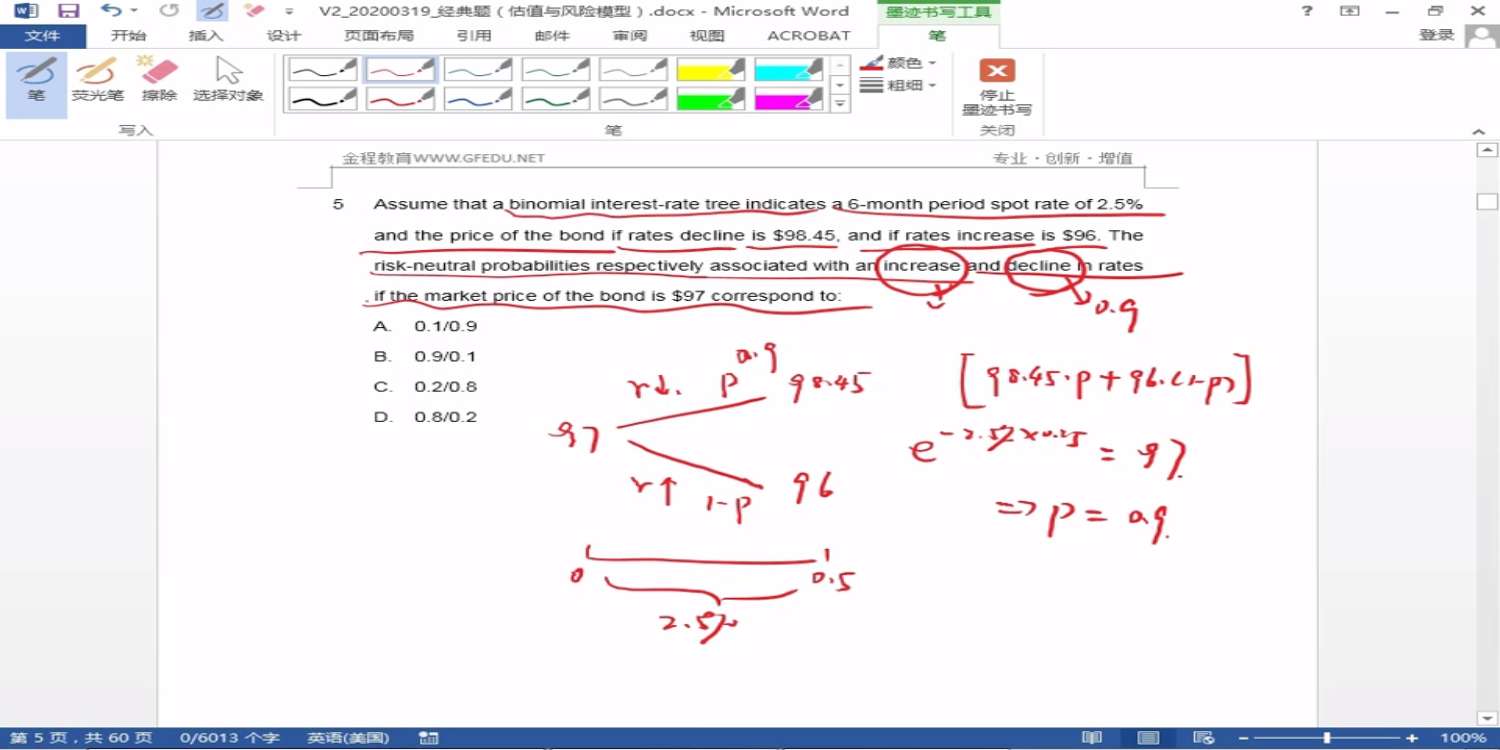 V2_20200319_经典题（估值与风险模型）.docx - Microsoft Word
墨迹书写工具
文件 开始 插入 设计 页面布局 引用 邮件 审阅 视图 ACROBAT 笔 登录
笔 荧光笔 擦除 选择对象
颜色
粗细
停止
墨迹书写
写入 笔 关闭
金程教育WWW.GFEDU.NET 专业·创新·增值
5 Assume that a binomial interest-rate tree indicates a 6-month period spot rate of 2.5%
and the price of the bond if rates decline is $98.45, and if rates increase is $96. The
risk-neutral probabilities respectively associated with an increase and decline in rates
if the market price of the bond is $97 correspond to:
0.9
A. 0.1/0.9
B. 0.9/0.1
C. 0.2/0.8
D. 0.8/0.2
0.9
r↓. p 98.45
97
r↑ 1-p 96
[98.45·p+96·(1-p)]
= 97.
⇒ p = 0.9.
0 0.5
2.5%
第 5 页，共 60 页 0/6013 个字 英语(美国) 100%